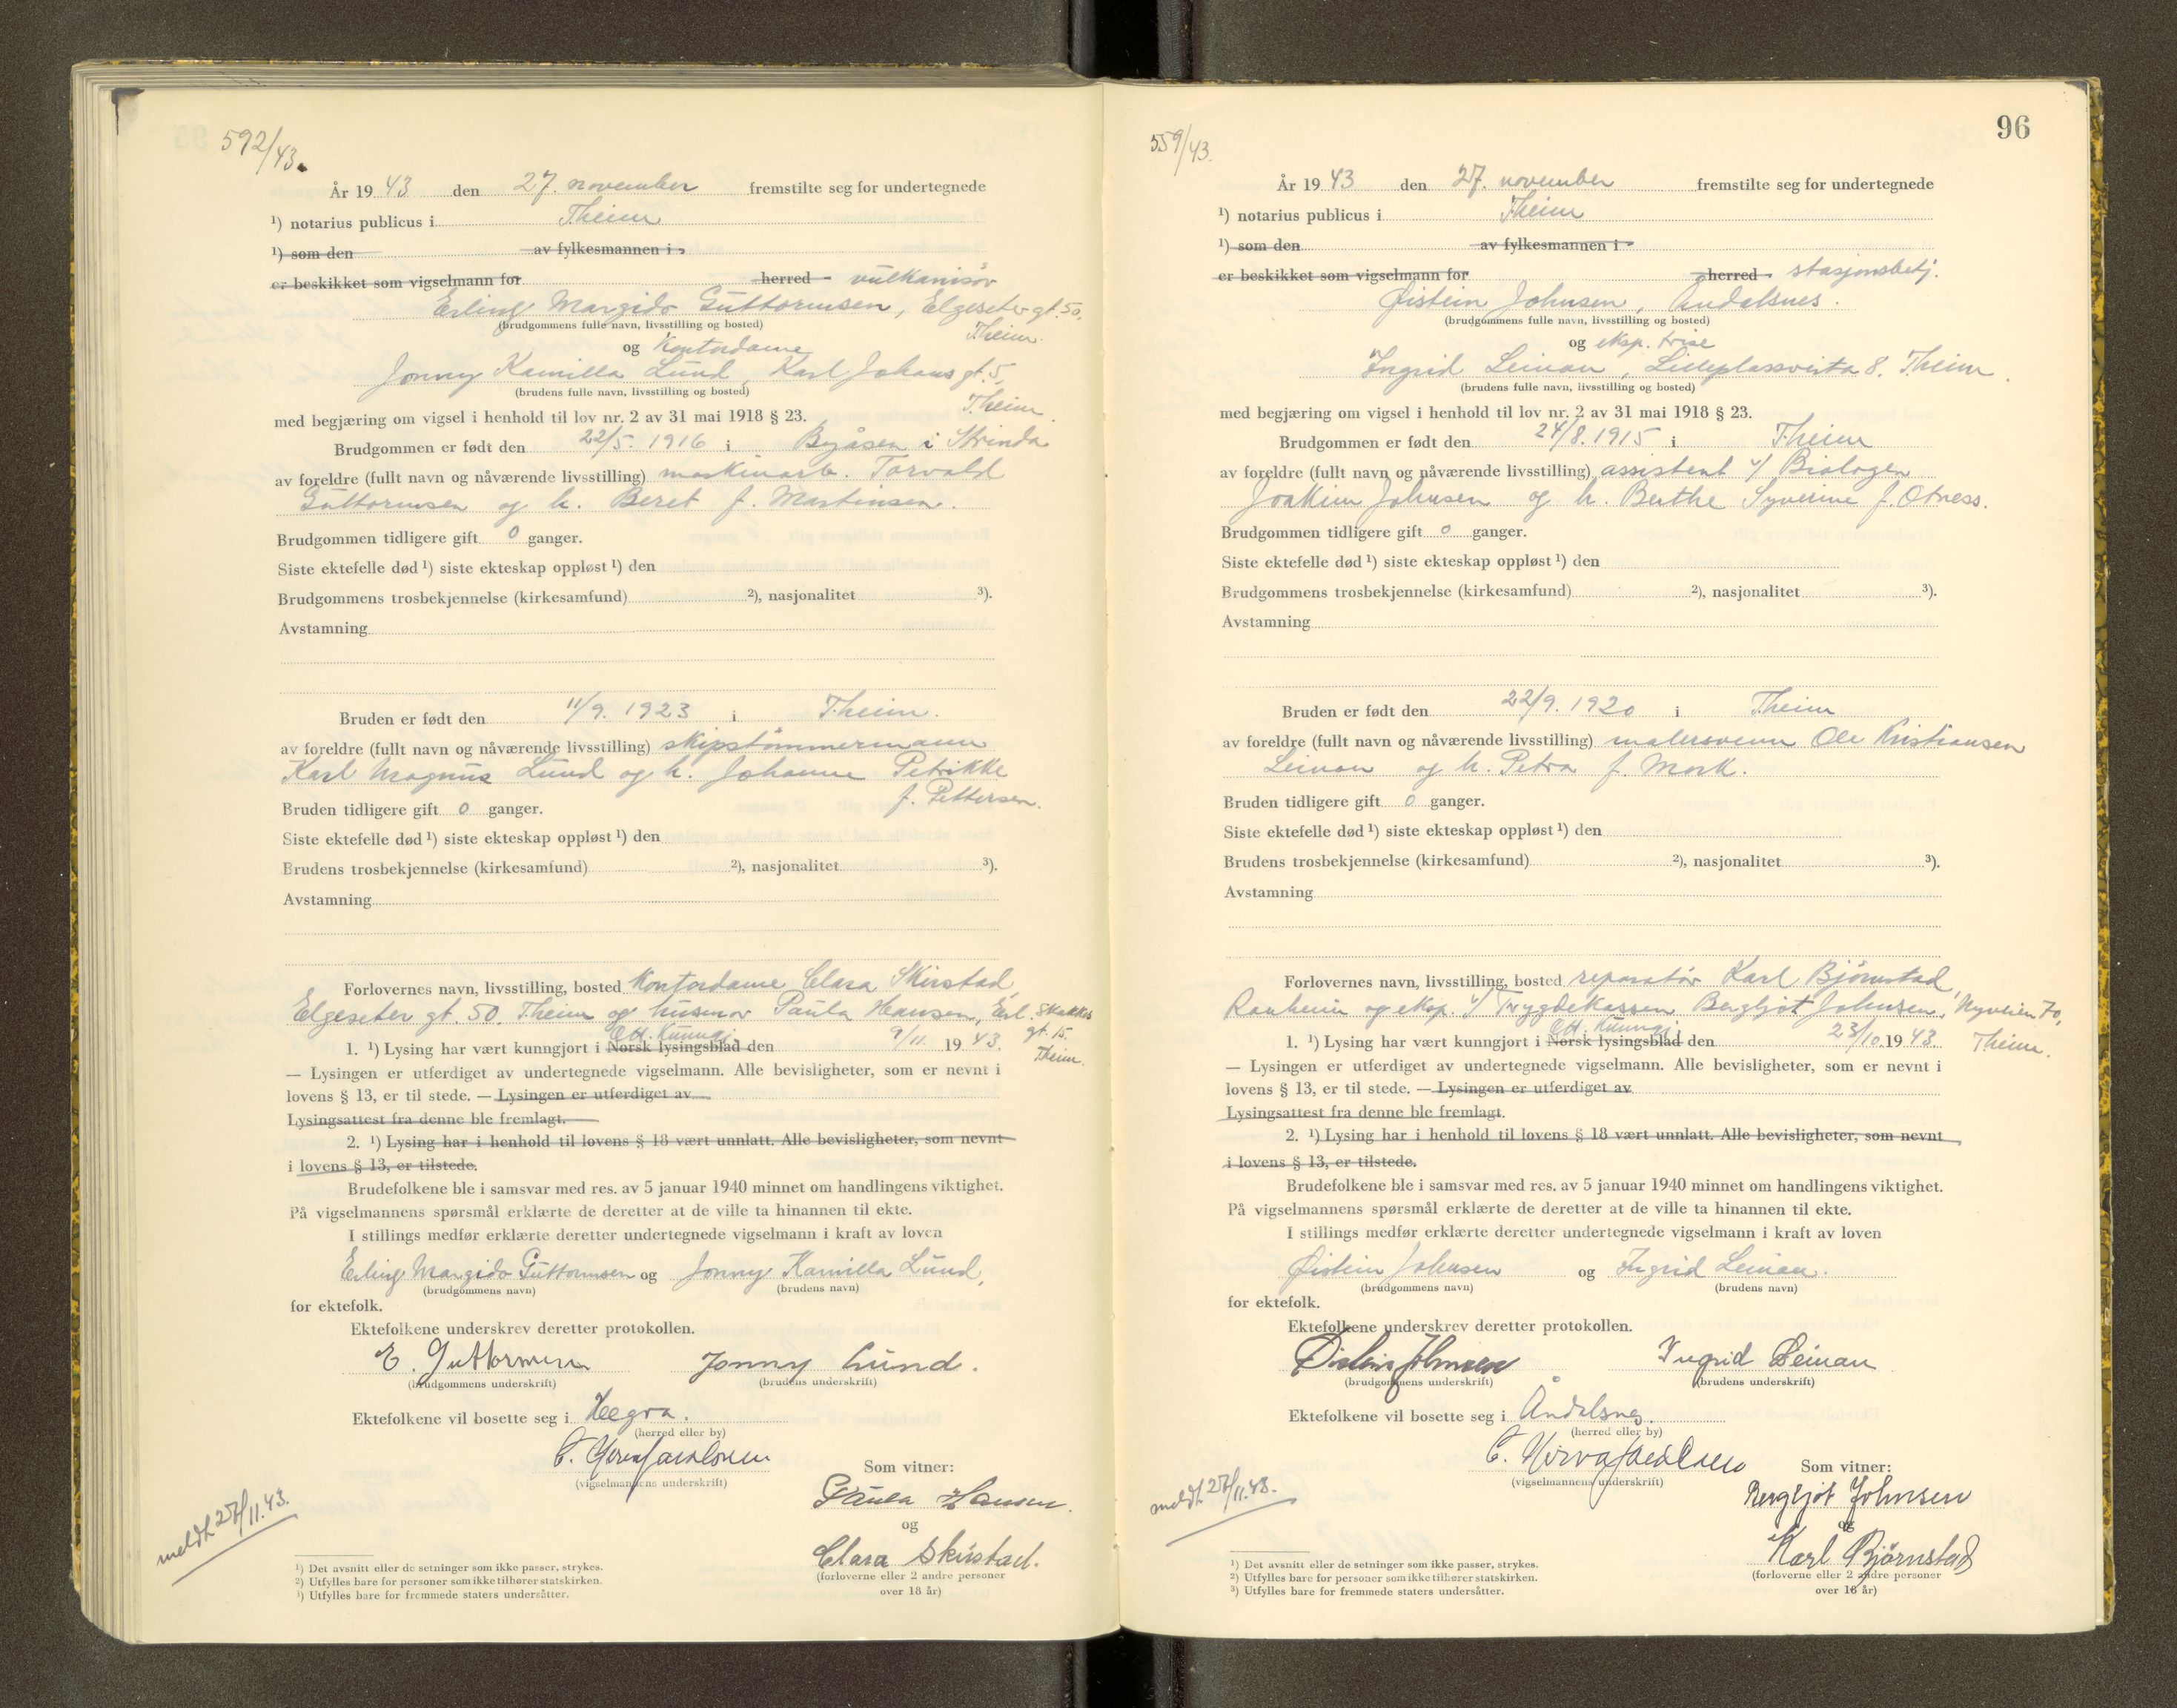 592/43.
År 1943 den 27. november fremstilte seg for undertegnede
¹) notarius publicus i Theim
¹) som den av fylkesmannen i
er beskikket som vigselmann for herred vulkanisør
Erling Margido Guttormsen, Elgeseter gt. 50,
(brudgommens fulle navn, livsstilling og bosted)
Theim.
og Kontordame
Jonny Kamilla Lund, Karl Johans gt. 5,
(brudens fulle navn, livsstilling og bosted)
Theim.
med begjæring om vigsel i henhold til lov nr. 2 av 31 mai 1918 § 23.
Brudgommen er født den 22/5. 1916 i Byåsen i Strinda
av foreldre (fullt navn og nåværende livsstilling) maskinarb. Torvald
Guttormsen og h. Beret f. Martinsen.
Brudgommen tidligere gift 0 ganger.
Siste ektefelle død ¹) siste ekteskap oppløst ¹) den
Brudgommens trosbekjennelse (kirkesamfund) ²), nasjonalitet ³).
Avstamning
Bruden er født den 11/9. 1923 i Theim.
av foreldre (fullt navn og nåværende livsstilling) skipstømmermann
Karl Magnus Lund og h. Johanne Petrikke
f. Pettersen.
Bruden tidligere gift 0 ganger.
Siste ektefelle død ¹) siste ekteskap oppløst ¹) den
Brudens trosbekjennelse (kirkesamfund) ²), nasjonalitet ³).
Avstamning
Forlovernes navn, livsstilling, bosted Kontordame Clara Skirstad,
Elgeseter gt. 50, Theim og husmor Paula Hansen, Erl. Skakkes
gt. 15.
Theim.
Off. Kunngj.
1. ¹) Lysing har vært kunngjort i Norsk lysingsblad den 9/11. 1943.
— Lysingen er utferdiget av undertegnede vigselmann. Alle bevisligheter, som er nevnt i
lovens § 13, er til stede. — Lysingen er utferdiget av
Lysingsattest fra denne ble fremlagt.
2. ¹) Lysing har i henhold til lovens § 18 vært unnlatt. Alle bevisligheter, som nevnt
i lovens § 13, er tilstede.
Brudefolkene ble i samsvar med res. av 5 januar 1940 minnet om handlingens viktighet.
På vigselmannens spørsmål erklærte de deretter at de ville ta hinannen til ekte.
I stillings medfør erklærte deretter undertegnede vigselmann i kraft av loven
Erling Margido Guttormsen og Jonny Kamilla Lund,
(brudgommens navn) (brudens navn)
for ektefolk.
Ektefolkene underskrev deretter protokollen.
E. Guttormsen Jonny Lund.
(brudgommens underskrift) (brudens underskrift)
Ektefolkene vil bosette seg i Hegra.
(herred eller by)
(vigselmannens underskrift)
Som vitner:
Paula Hansen.
og
Clara Skirstad.
(forloverne eller 2 andre personer
over 18 år)
meldt 27/11.43.
¹) Det avsnitt eller de setninger som ikke passer, strykes.
²) Utfylles bare for personer som ikke tilhører statskirken.
³) Utfylles bare for fremmede staters undersåtter.
96
559/43.
År 1943 den 27. november fremstilte seg for undertegnede
¹) notarius publicus i Theim
¹) som den av fylkesmannen i
er beskikket som vigselmann for herred stasjonsbetj.
Øistein Johnsen, Åndalsnes.
(brudgommens fulle navn, livsstilling og bosted)
og eksp. trise
Ingrid Leinan, Lilleplassveita 8. Theim.
(brudens fulle navn, livsstilling og bosted)
med begjæring om vigsel i henhold til lov nr. 2 av 31 mai 1918 § 23.
Brudgommen er født den 24/8. 1915 i Theim
av foreldre (fullt navn og nåværende livsstilling) assistent v/ Biologen
Joakim Johnsen og h. Berthe Syverine f. Otness.
Brudgommen tidligere gift 0 ganger.
Siste ektefelle død ¹) siste ekteskap oppløst ¹) den
Brudgommens trosbekjennelse (kirkesamfund) ²), nasjonalitet ³).
Avstamning
Bruden er født den 22/9. 1920 i Theim
av foreldre (fullt navn og nåværende livsstilling) malersvenn Ole Kristiansen
Leinan og h. Petra f. Mork.
Bruden tidligere gift 0 ganger.
Siste ektefelle død ¹) siste ekteskap oppløst ¹) den
Brudens trosbekjennelse (kirkesamfund) ²), nasjonalitet ³).
Avstamning
Forlovernes navn, livsstilling, bosted reparatør Karl Bjørnstad,
Ranheim og eksp. v/ Trygdekassen Bergljot Johnsen, Nyveien 70,
Theim.
Off. Kunngj.
1. ¹) Lysing har vært kunngjort i Norsk lysingsblad den 23/10. 1943.
— Lysingen er utferdiget av undertegnede vigselmann. Alle bevisligheter, som er nevnt i
lovens § 13, er til stede. — Lysingen er utferdiget av
Lysingsattest fra denne ble fremlagt.
2. ¹) Lysing har i henhold til lovens § 18 vært unnlatt. Alle bevisligheter, som nevnt
i lovens § 13, er tilstede.
Brudefolkene ble i samsvar med res. av 5 januar 1940 minnet om handlingens viktighet.
På vigselmannens spørsmål erklærte de deretter at de ville ta hinannen til ekte.
I stillings medfør erklærte deretter undertegnede vigselmann i kraft av loven
Øistein Johnsen og Ingrid Leinan.
(brudgommens navn) (brudens navn)
for ektefolk.
Ektefolkene underskrev deretter protokollen.
Øistein Johnsen Ingrid Leinan
(brudgommens underskrift) (brudens underskrift)
Ektefolkene vil bosette seg i Åndalsnes.
(herred eller by)
(vigselmannens underskrift)
Som vitner:
Bergljot Johnsen
og
Karl Bjørnstad
(forloverne eller 2 andre personer
over 18 år)
meldt 27/11.43.
¹) Det avsnitt eller de setninger som ikke passer, strykes.
²) Utfylles bare for personer som ikke tilhører statskirken.
³) Utfylles bare for fremmede staters undersåtter.